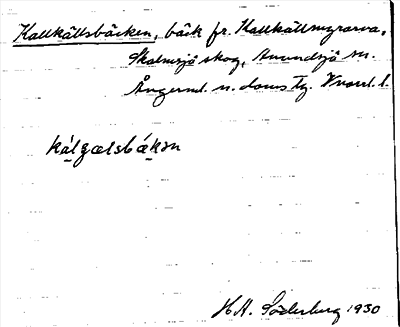 Kallkällsbäcken, bäck fr. Kallkällmyrarna,
Skalmsjö skog, Anundsjö sn.
Ångerml. n. doms tg. Vnorrl. l.
kálgælsbækən
H.A. Söderberg 1930